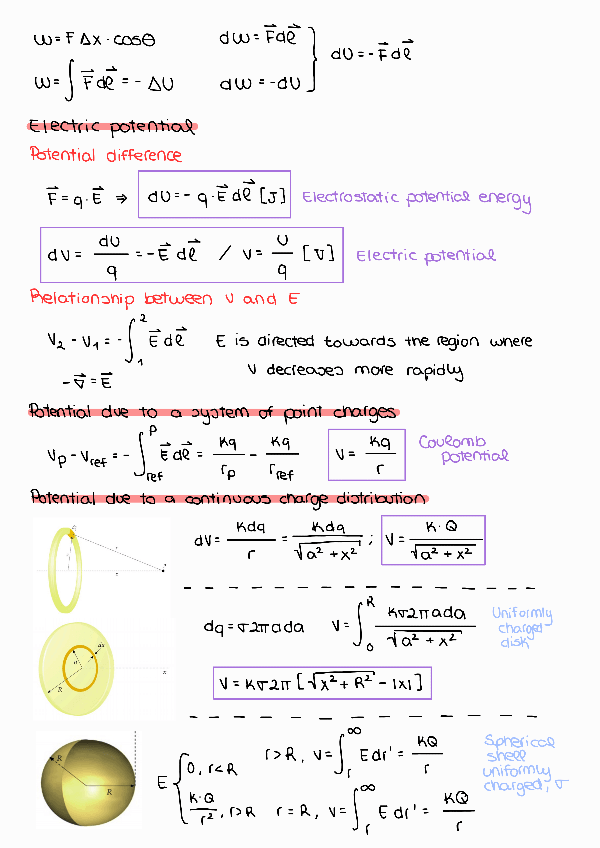 W = F Δx · cosθ
dW = F⃗ dl⃗
dU = - F⃗ dl⃗
W = ∫ F⃗ dl⃗ = - ΔU
dW = - dU
Electric potential
Potential difference
F⃗ = q · E⃗ ⇒ dU = - q · E⃗ dl⃗ [J] Electrostatic potential energy
dV = dU/q = - E⃗ dl⃗ / V = U/q [V] Electric potential
Relationship between V and E
V₂ - V₁ = - ∫₁² E⃗ dl⃗ E is directed towards the region where
V decreases more rapidly
- ∇⃗ = E⃗
Potential due to a system of point charges
Vp - Vref = - ∫ref^P E⃗ dl⃗ = Kq/rp - Kq/rref V = Kq/r Coulomb
potential
Potential due to a continuous charge distribution
dV = Kdq/r = Kdq/√(a² + x²) ; V = K · Q/√(a² + x²)
dq = σ2πada V = ∫₀^R Kσ2πada/√(a² + x²)
Uniformly
charged
disk
V = Kσ2π [√(x² + R²) - |x|]
R
a
da
x
E { 0, r<R
K·Q/r², r>R
r>R, V = ∫r^∞ E dr' = KQ/r
r = R, V = ∫r^∞ E dr' = KQ/r
Spherical
shell
uniformly
charged, σ
R
R